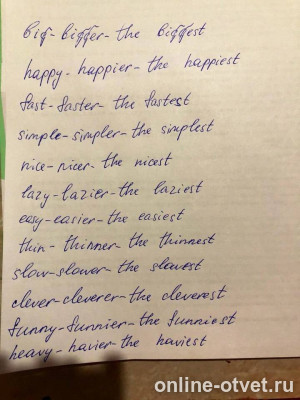 big-bigger-the biggest
happy-happier-the happiest
fast-faster-the fastest
simple-simpler-the simplest
nice-nicer-the nicest
lazy-lazier-the laziest
easy-easier-the easiest
thin-thinner-the thinnest
slow-slower-the slowest
clever-cleverer-the cleverest
funny-funnier-the funniest
heavy-havier-the haviest
online-otvet.ru